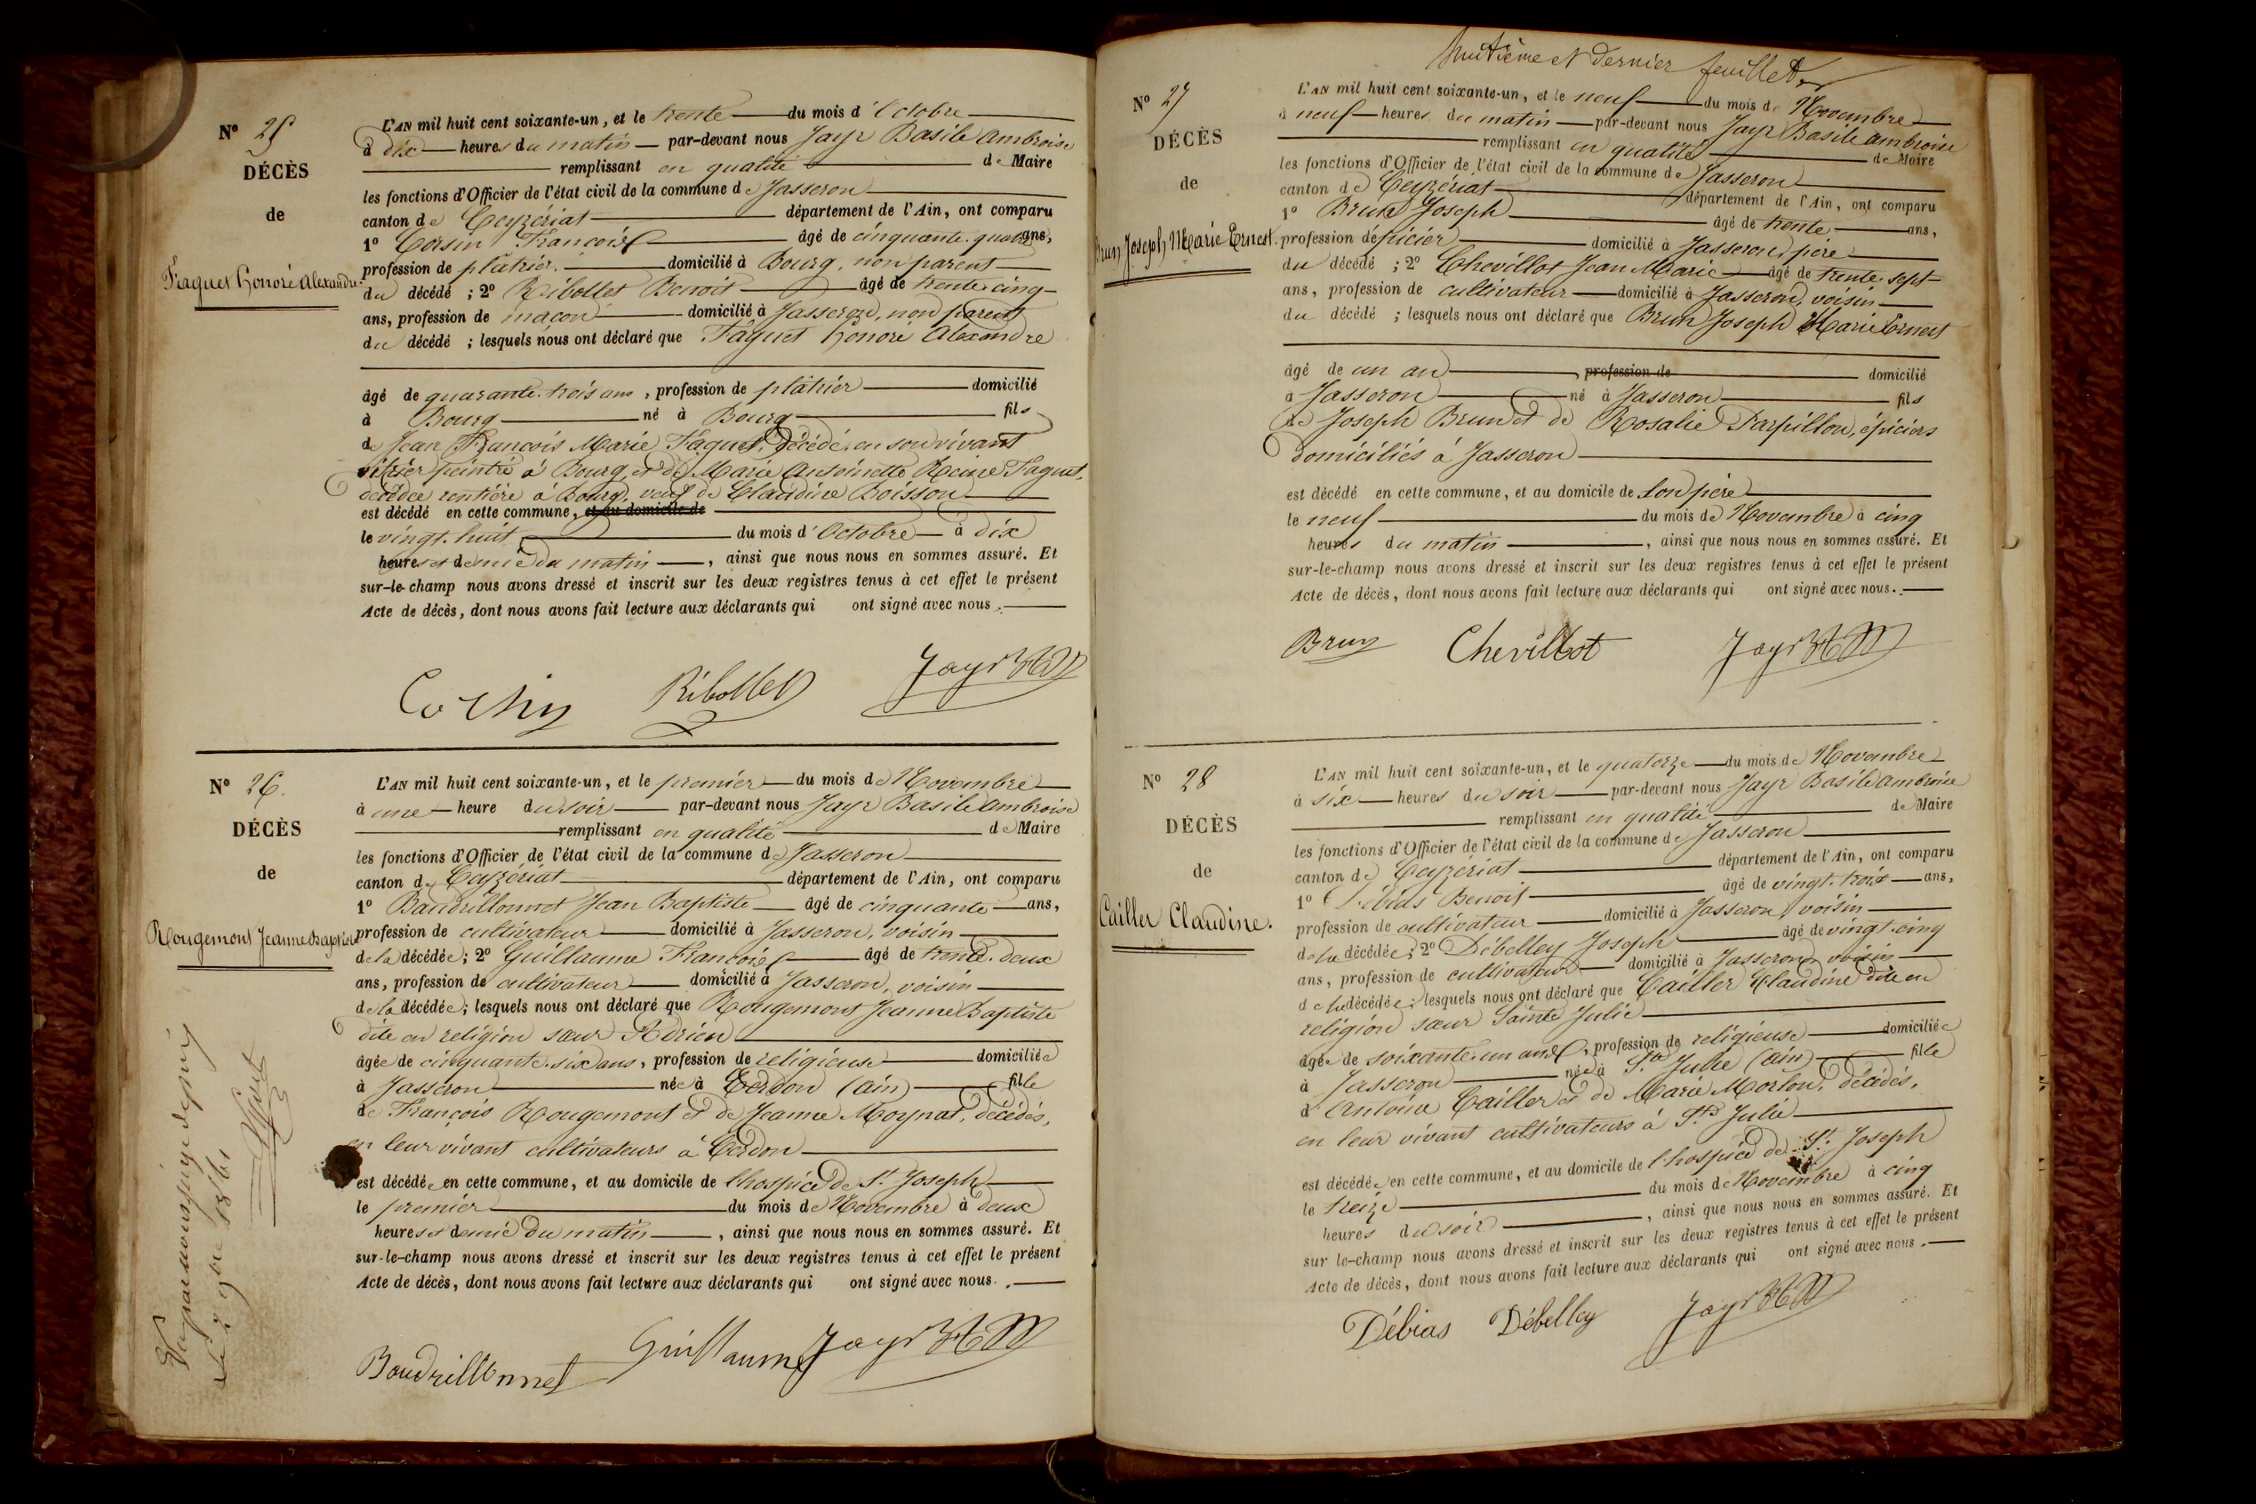 N° 25
DÉCÈS
de
Faguet Honoré Alexandre
L'AN mil huit cent soixante-un, et le trente du mois d'Octobre
à dix heures du matin par-devant nous Jayr Basile Ambroise
remplissant en qualité de Maire
les fonctions d'Officier de l'état civil de la commune de Jasseron
canton de Ceyzériat département de l'Ain, ont comparu
1° Corsin François âgé de cinquante-quatre ans,
profession de plâtrier domicilié à Bourg, non parent
du décédé ; 2° Ribollet Benoit âgé de trente-cinq
ans, profession de maçon domicilié à Jasseron, non parent
du décédé ; lesquels nous ont déclaré que Faguet honoré Alexandre
âgé de quarante-trois ans, profession de plâtrier domicilié
à Bourg né à Bourg fils
de Jean François Marie Faguet, décédé, en son vivant
vitrier peintre à Bourg, et de Marie Antoinette Reine Faguet,
décédée rentière à Bourg, veuf de Claudine Boisson
est décédé en cette commune, et au domicile de
le vingt-huit du mois d'Octobre à dix
heures et demie du matin, ainsi que nous nous en sommes assuré. Et
sur-le-champ nous avons dressé et inscrit sur les deux registres tenus à cet effet le présent
Acte de décès, dont nous avons fait lecture aux déclarants qui ont signé avec nous.
Ribollet Jayr
N° 26.
DÉCÈS
de
Rougemont Jeanne Baptiste
L'AN mil huit cent soixante-un, et le premier du mois de Novembre
à une heure du soir par-devant nous Jayr Basile Ambroise
remplissant en qualité de Maire
les fonctions d'Officier de l'état civil de la commune de Jasseron
canton de Ceyzériat département de l'Ain, ont comparu
1° Baudrillonnet Jean Baptiste âgé de cinquante ans,
profession de cultivateur domicilié à Jasseron, voisin
de la décédée ; 2° Guillaume François âgé de trente-deux
ans, profession de cultivateur domicilié à Jasseron, voisin
de la décédée ; lesquels nous ont déclaré que Rougemont Jeanne Baptiste
dite en religion sœur Adrien
âgée de cinquante-six ans, profession de religieuse domiciliée
à Jasseron née à Cerdon (ain) fille
de François Rougemont et de Jeanne Moynat, décédés,
en leur vivant cultivateurs à Cerdon
est décédée en cette commune, et au domicile de l'hospice de St. Joseph
le premier du mois de Novembre à deux
heures et demie du matin, ainsi que nous nous en sommes assuré. Et
sur-le-champ nous avons dressé et inscrit sur les deux registres tenus à cet effet le présent
Acte de décès, dont nous avons fait lecture aux déclarants qui ont signé avec nous.
Baudrillonnet Guillaume Jayr
Vu par nous juge de paix
Le 2 9bre 1861
huitième et dernier feuillet
N° 27
DÉCÈS
de
Brun Joseph Marie Ernest.
L'AN mil huit cent soixante-un, et le neuf du mois de Novembre
à neuf heures du matin par-devant nous Jayr Basile Ambroise
remplissant en qualité de Maire
les fonctions d'Officier de l'état civil de la commune de Jasseron
canton de Ceyzériat département de l'Ain, ont comparu
1° Brun Joseph âgé de trente ans,
profession d'épicier domicilié à Jasseron, père
du décédé ; 2° Chevillot Jean Marie âgé de trente-sept
ans, profession de cultivateur domicilié à Jasseron, voisin
du décédé ; lesquels nous ont déclaré que Brun Joseph Marie Ernest
âgé de un an, profession de domicilié
à Jasseron né à Jasseron fils
de Joseph Brun et de Rosalie Parpillon, épiciers
domiciliés à Jasseron
est décédé en cette commune, et au domicile de son père
le neuf du mois de Novembre à cinq
heures du matin, ainsi que nous nous en sommes assuré. Et
sur-le-champ nous avons dressé et inscrit sur les deux registres tenus à cet effet le présent
Acte de décès, dont nous avons fait lecture aux déclarants qui ont signé avec nous.
Brun Chevillot Jayr
N° 28
DÉCÈS
de
Cailler Claudine.
L'AN mil huit cent soixante-un, et le quatorze du mois de Novembre
à six heures du soir par-devant nous Jayr Basile Ambroise
remplissant en qualité de Maire
les fonctions d'Officier de l'état civil de la commune de Jasseron
canton de Ceyzériat département de l'Ain, ont comparu
1° Débias Benoit âgé de vingt-trois ans,
profession de cultivateur domicilié à Jasseron, voisin
de la décédée ; 2° Débelley Joseph âgé de vingt-cinq
ans, profession de cultivateur domicilié à Jasseron, voisin
de la décédée ; lesquels nous ont déclaré que Cailler Claudine dite en
religion sœur Sainte Julie
âgée de soixante-un ans, profession de religieuse domiciliée
à Jasseron née à Ste Julie (ain) fille
d'Antoine Cailler et de Marie Morlon, décédés,
en leur vivant cultivateurs à Ste Julie
est décédée en cette commune, et au domicile de l'hospice de St. Joseph
le treize du mois de Novembre à cinq
heures du soir, ainsi que nous nous en sommes assuré. Et
sur-le-champ nous avons dressé et inscrit sur les deux registres tenus à cet effet le présent
Acte de décès, dont nous avons fait lecture aux déclarants qui ont signé avec nous.
Débias Débelley Jayr